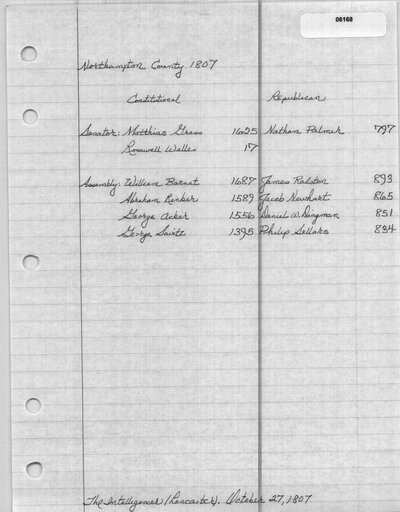 06168
Northampton County 1807
Constitutional Republican
Senator: Matthias Gress 1625 Nathan Palmer 797
Rosewell Welles 17
Assembly: William Barnet 1687 James Ralston 893
Abraham Rinker 1589 Jacob Newhart 865
George Acker 1556 Daniel W. Dingman 851
George Savitz 1395 Philip Sellars 834
The Intelligencer (Lancaster). October 27, 1807